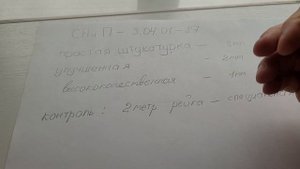 СНиП - 3.04.01-87
простая штукатурка - 3мм
улучшенная - 2мм
высококачественная - 1мм
контроль: 2метр рейка -